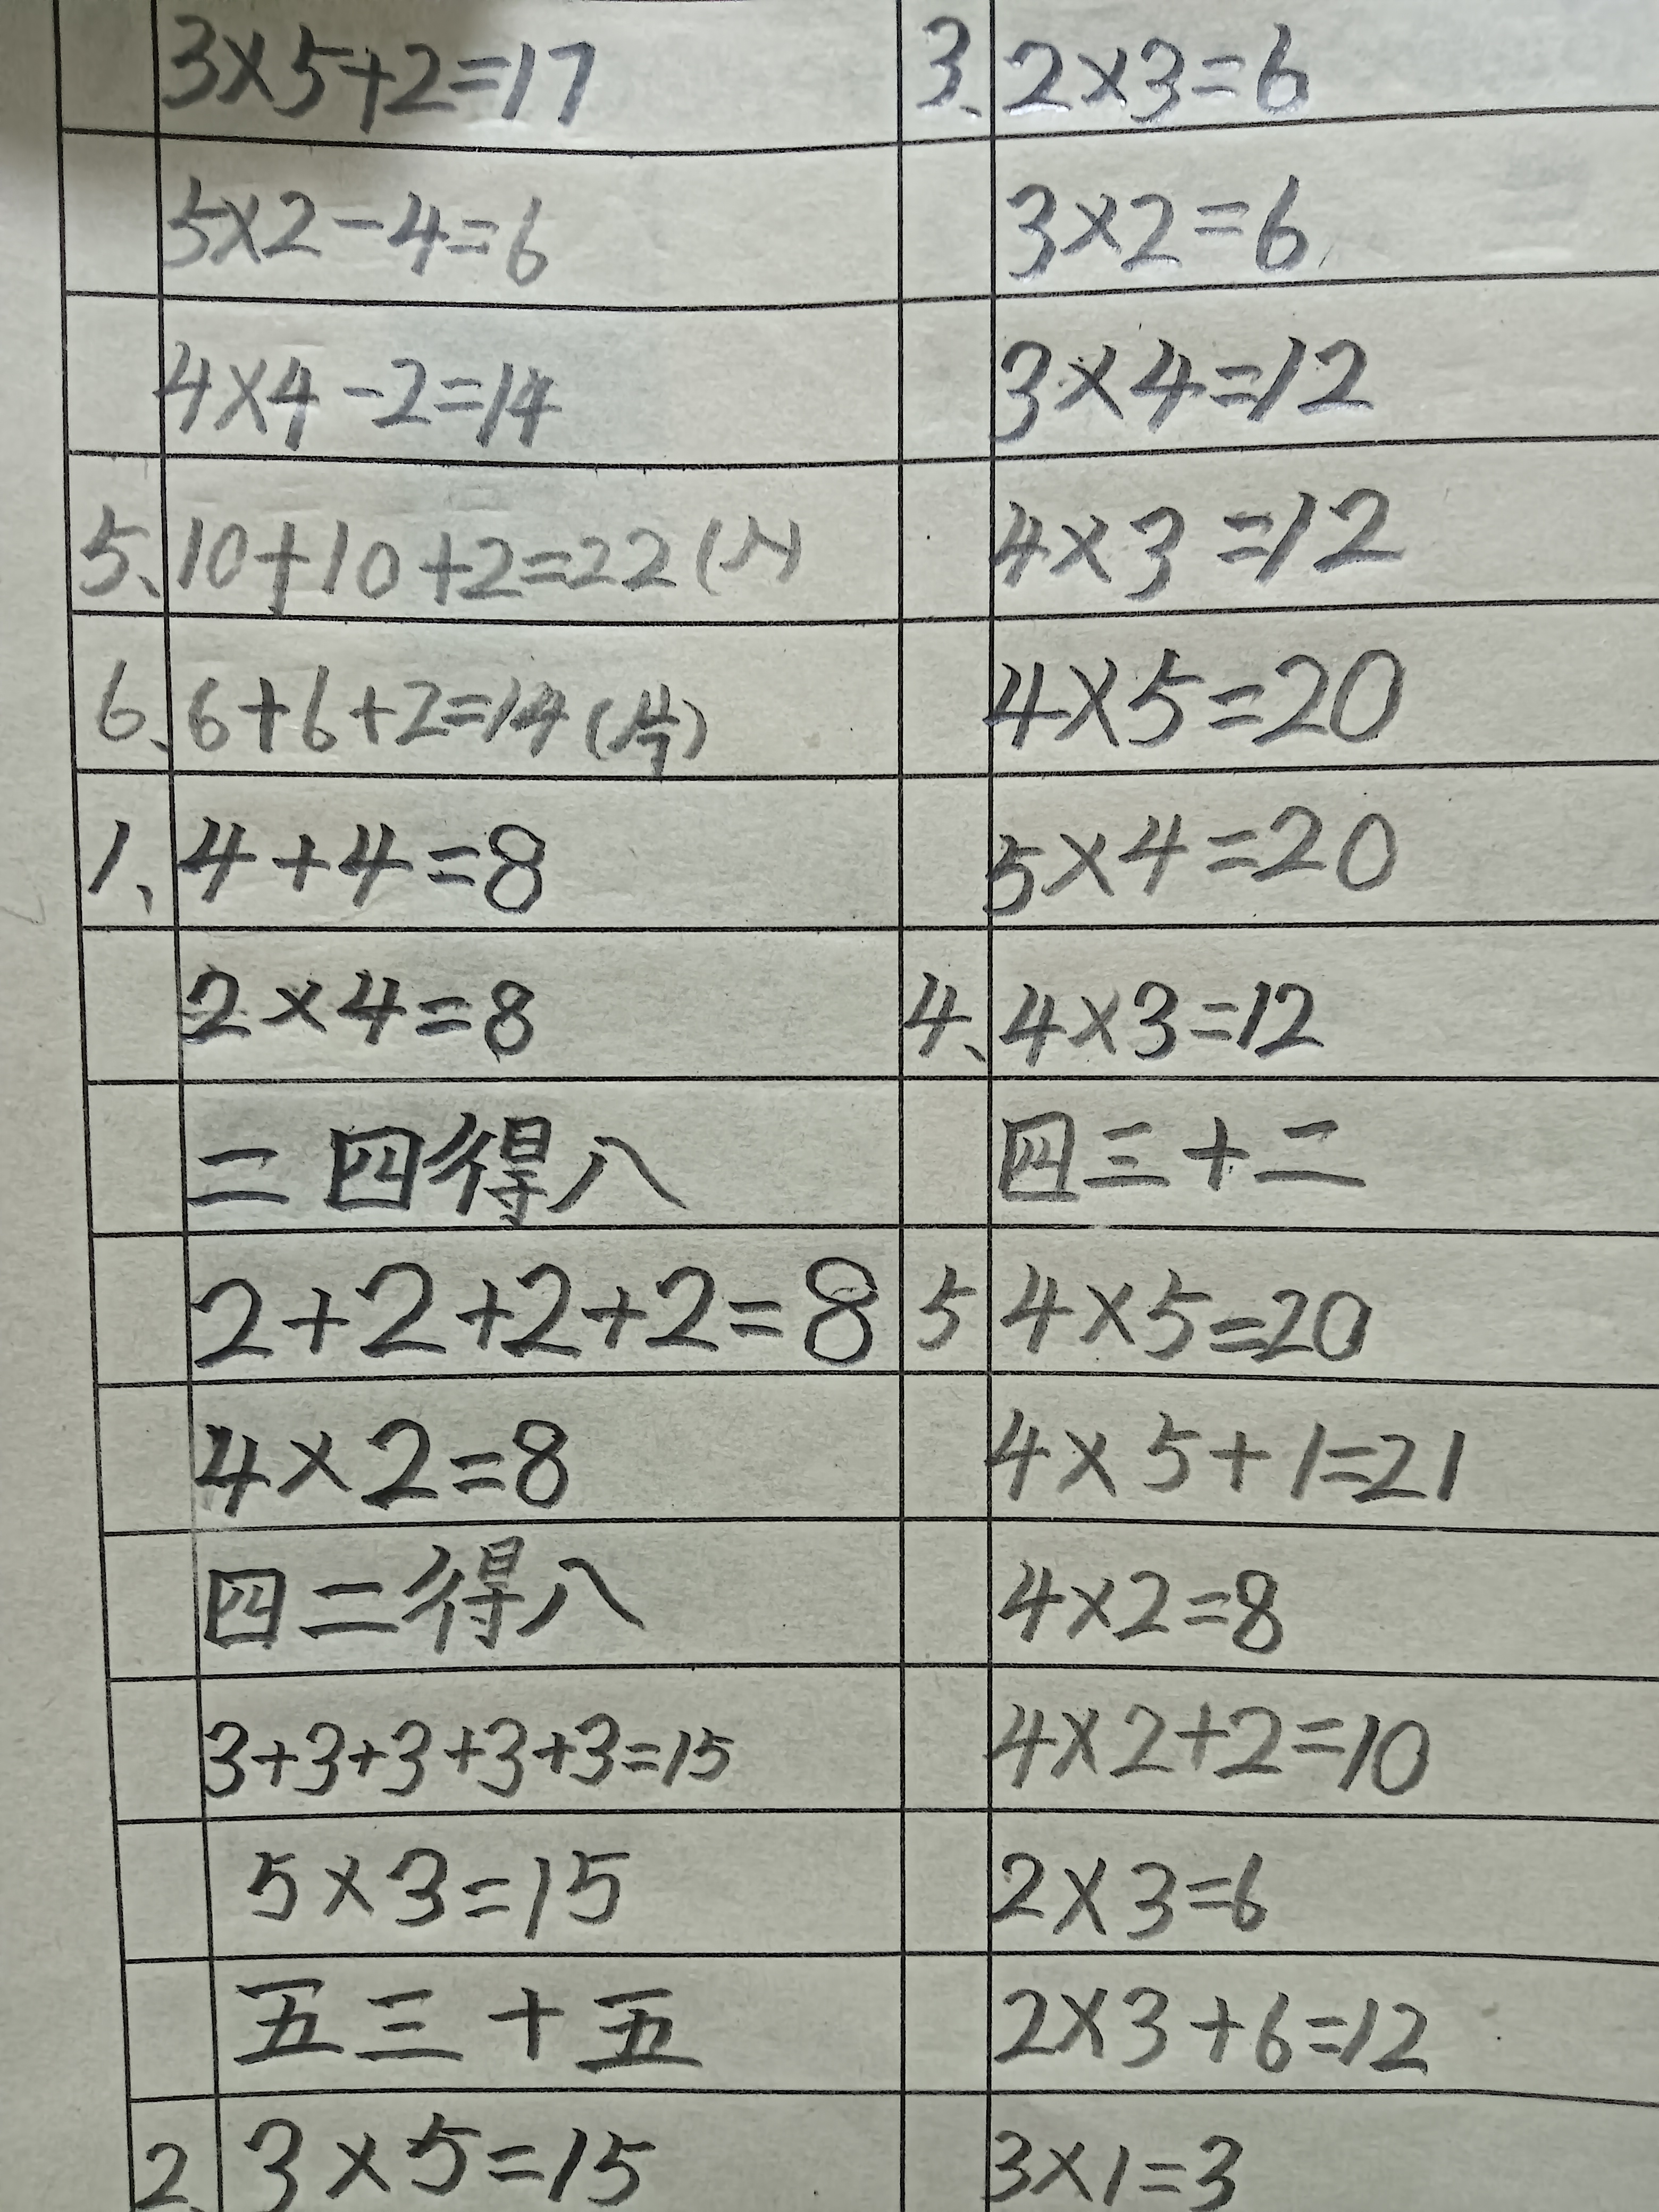 3×5+2=17
5×2-4=6
4×4-2=14
5、10+10+2=22(人)
6、6+6+2=14()
1、4+4=8
2×4=8
二四得八
2+2+2+2=8
4×2=8
四二得八
3+3+3+3+3=15
5×3=15
五三十五
2、3×5=15
3、2×3=6
3×2=6
3×4=12
4×3=12
4×5=20
5×4=20
4、4×3=12
四三十二
5 4×5=20
4×5+1=21
4×2=8
4×2+2=10
2×3=6
2×3+6=12
3×1=3